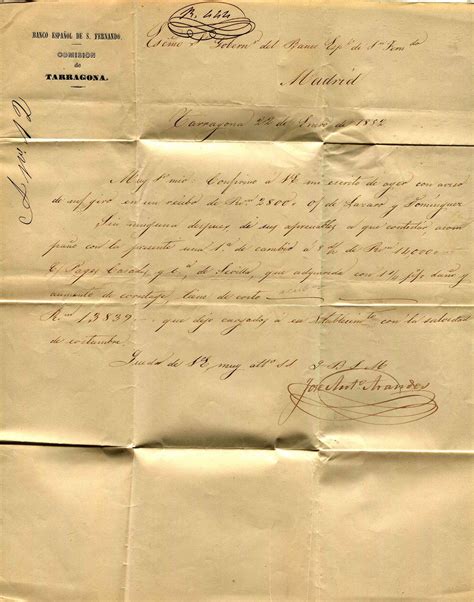 B. 444
BANCO ESPAÑOL DE S. FERNANDO.
COMISION
de
TARRAGONA.
Sr. Gobern.r del Banco Esp.l de S.n Fern.do
Madrid
Tarragona 22 de Enero de 1852
Muy S.r mio: Confirmo a VE mi escrito de ayer con aviso
de mi giro en un recibo de Rvn 2800. o/ de Lavaro y Dominguez
Sin ninguna despues de sus apreciables a que contestar, acom
paño con la presente una 1.a de cambio a 8 d/v de Rvn 14000
C/ Pages Casades y C.a de Sevilla, que adquirida con 1% daño y
aumento de corretaje tiene de costo
Rvn 13839. que dejo cargados a ese Establecim.to con la salvedad
de costumbre.
Queda de VE muy at.o SS Q.B.S.M
José Ant.o Arandes